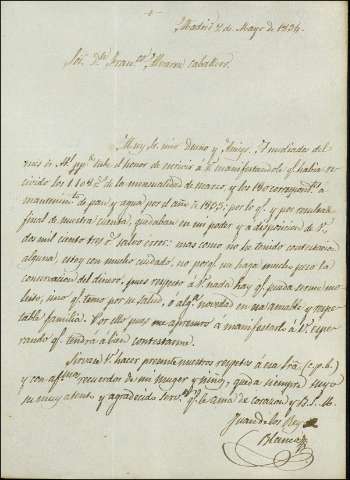 Madrid 7 de Mayo de 1834.
Sor. Dn. Fran.co Alvarez Caballero.
Muy Sr. mio Dueño y Amigo. A mediados del
mes de tube el honor de escrivir à V. manifestandole q.e habia re-
civido los 1108 r.s de la mensualidad de marzo, y los 180 correspond.s a
mantenim.to de pan y agua por el año de 1833: por lo q.e y por resulta
final de nuestra cuenta, quedaban en mi poder y à disposicion de V.
dos mil ciento tres r.s salvo error: mas como no he tenido contestacion
alguna estoy con mucho cuidado, no porq.e me haga mucho peso la
conservacion del dinero, pues respeto à V. nada hay q.e pueda serme mo-
lesto, sino q.e temo por su salud, o alg.a novedad en su amable y respe-
table familia. Por ello pues me apresuro a manifestarlo à V. espe-
rando q.e tendrà à bien contestarme.
Sirvase V. hacer presente nuestros respetos à esa Sra. (c.p.b.)
y con af.mos recuerdos de mi muger y niños, queda siempre suyo
su muy atento y agradecido serv.or q.e le ama de corazon y B. S. M.
Juan de los Reyes
Blanca